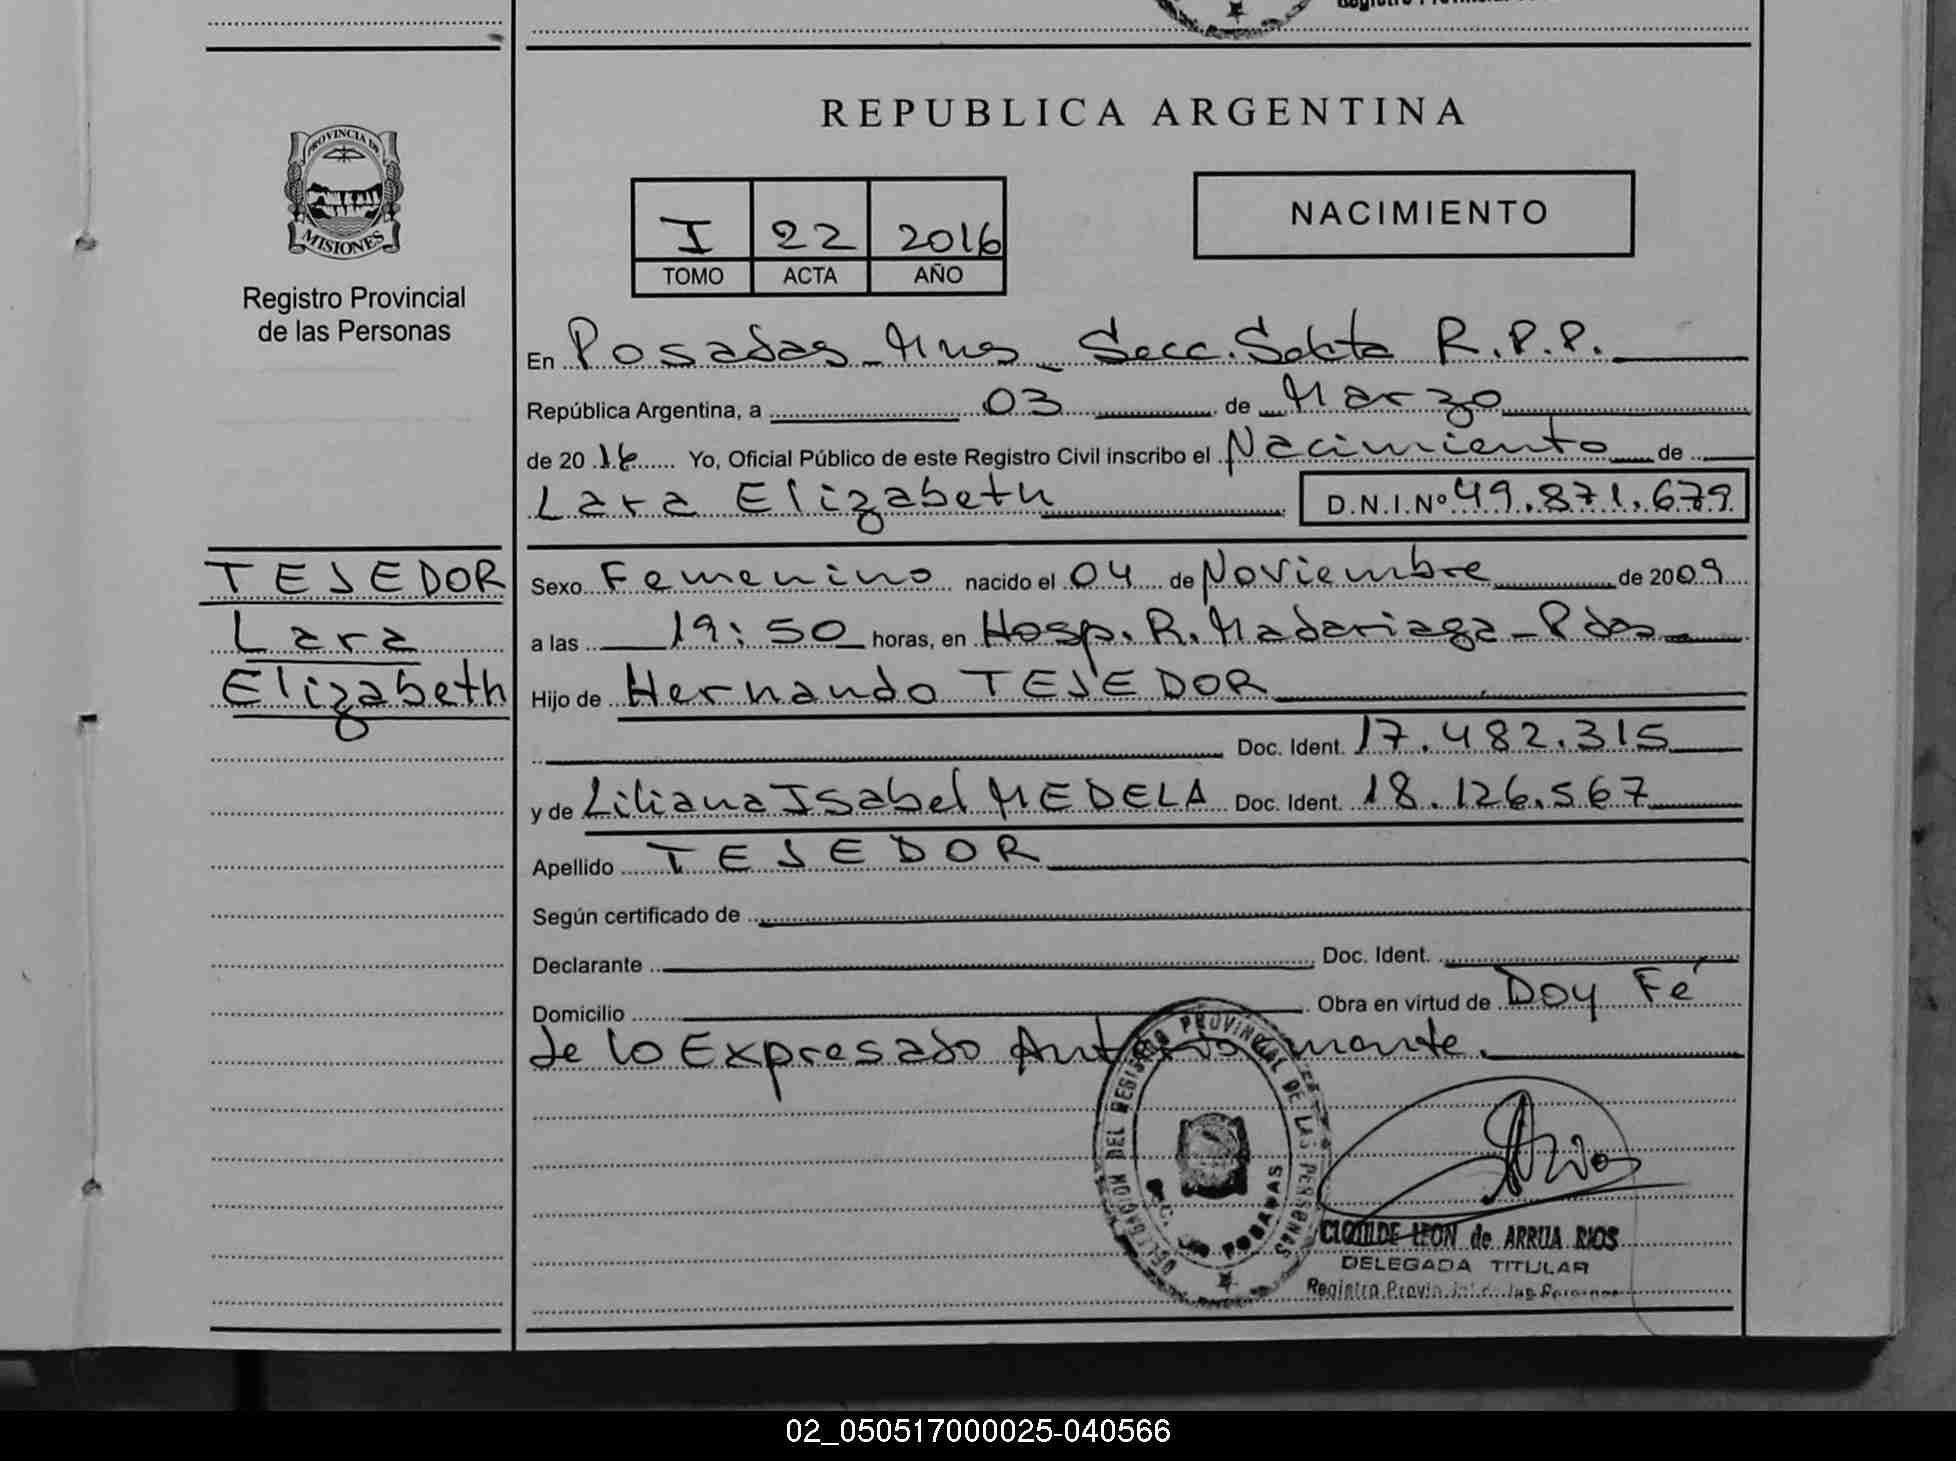 REPUBLICA ARGENTINA
PROVINCIA DE
MISIONES
Registro Provincial
de las Personas
NACIMIENTO
I 22 2016
TOMO ACTA AÑO
En Posadas - Mnes Secc. Sexta R.P.P.
República Argentina, a 03 de Marzo
de 2016 Yo, Oficial Público de este Registro Civil inscribo el Nacimiento de
Lara Elizabeth D.N.I.Nº 49.871.679
TESEDOR
Lara
Elizabeth
Sexo Femenino nacido el 04 de Noviembre de 2009
a las 19:50 horas, en Hosp. R. Madariaga - Pdas
Hijo de Hernando TESEDOR
Doc. Ident. 17.482.315
y de Liliana Isabel MEDELA Doc. Ident. 18.126.567
Apellido TESEDOR
Según certificado de
Declarante Doc. Ident.
Domicilio Obra en virtud de Doy Fé
de lo Expresado Anteriormente.
DELEGACION DEL REGISTRO PROVINCIAL DE LAS PERSONAS
POSADAS
CLOTILDE LEON de ARRUA RIOS
DELEGADA TITULAR
Registro Provincial de las Personas
02_050517000025-040566